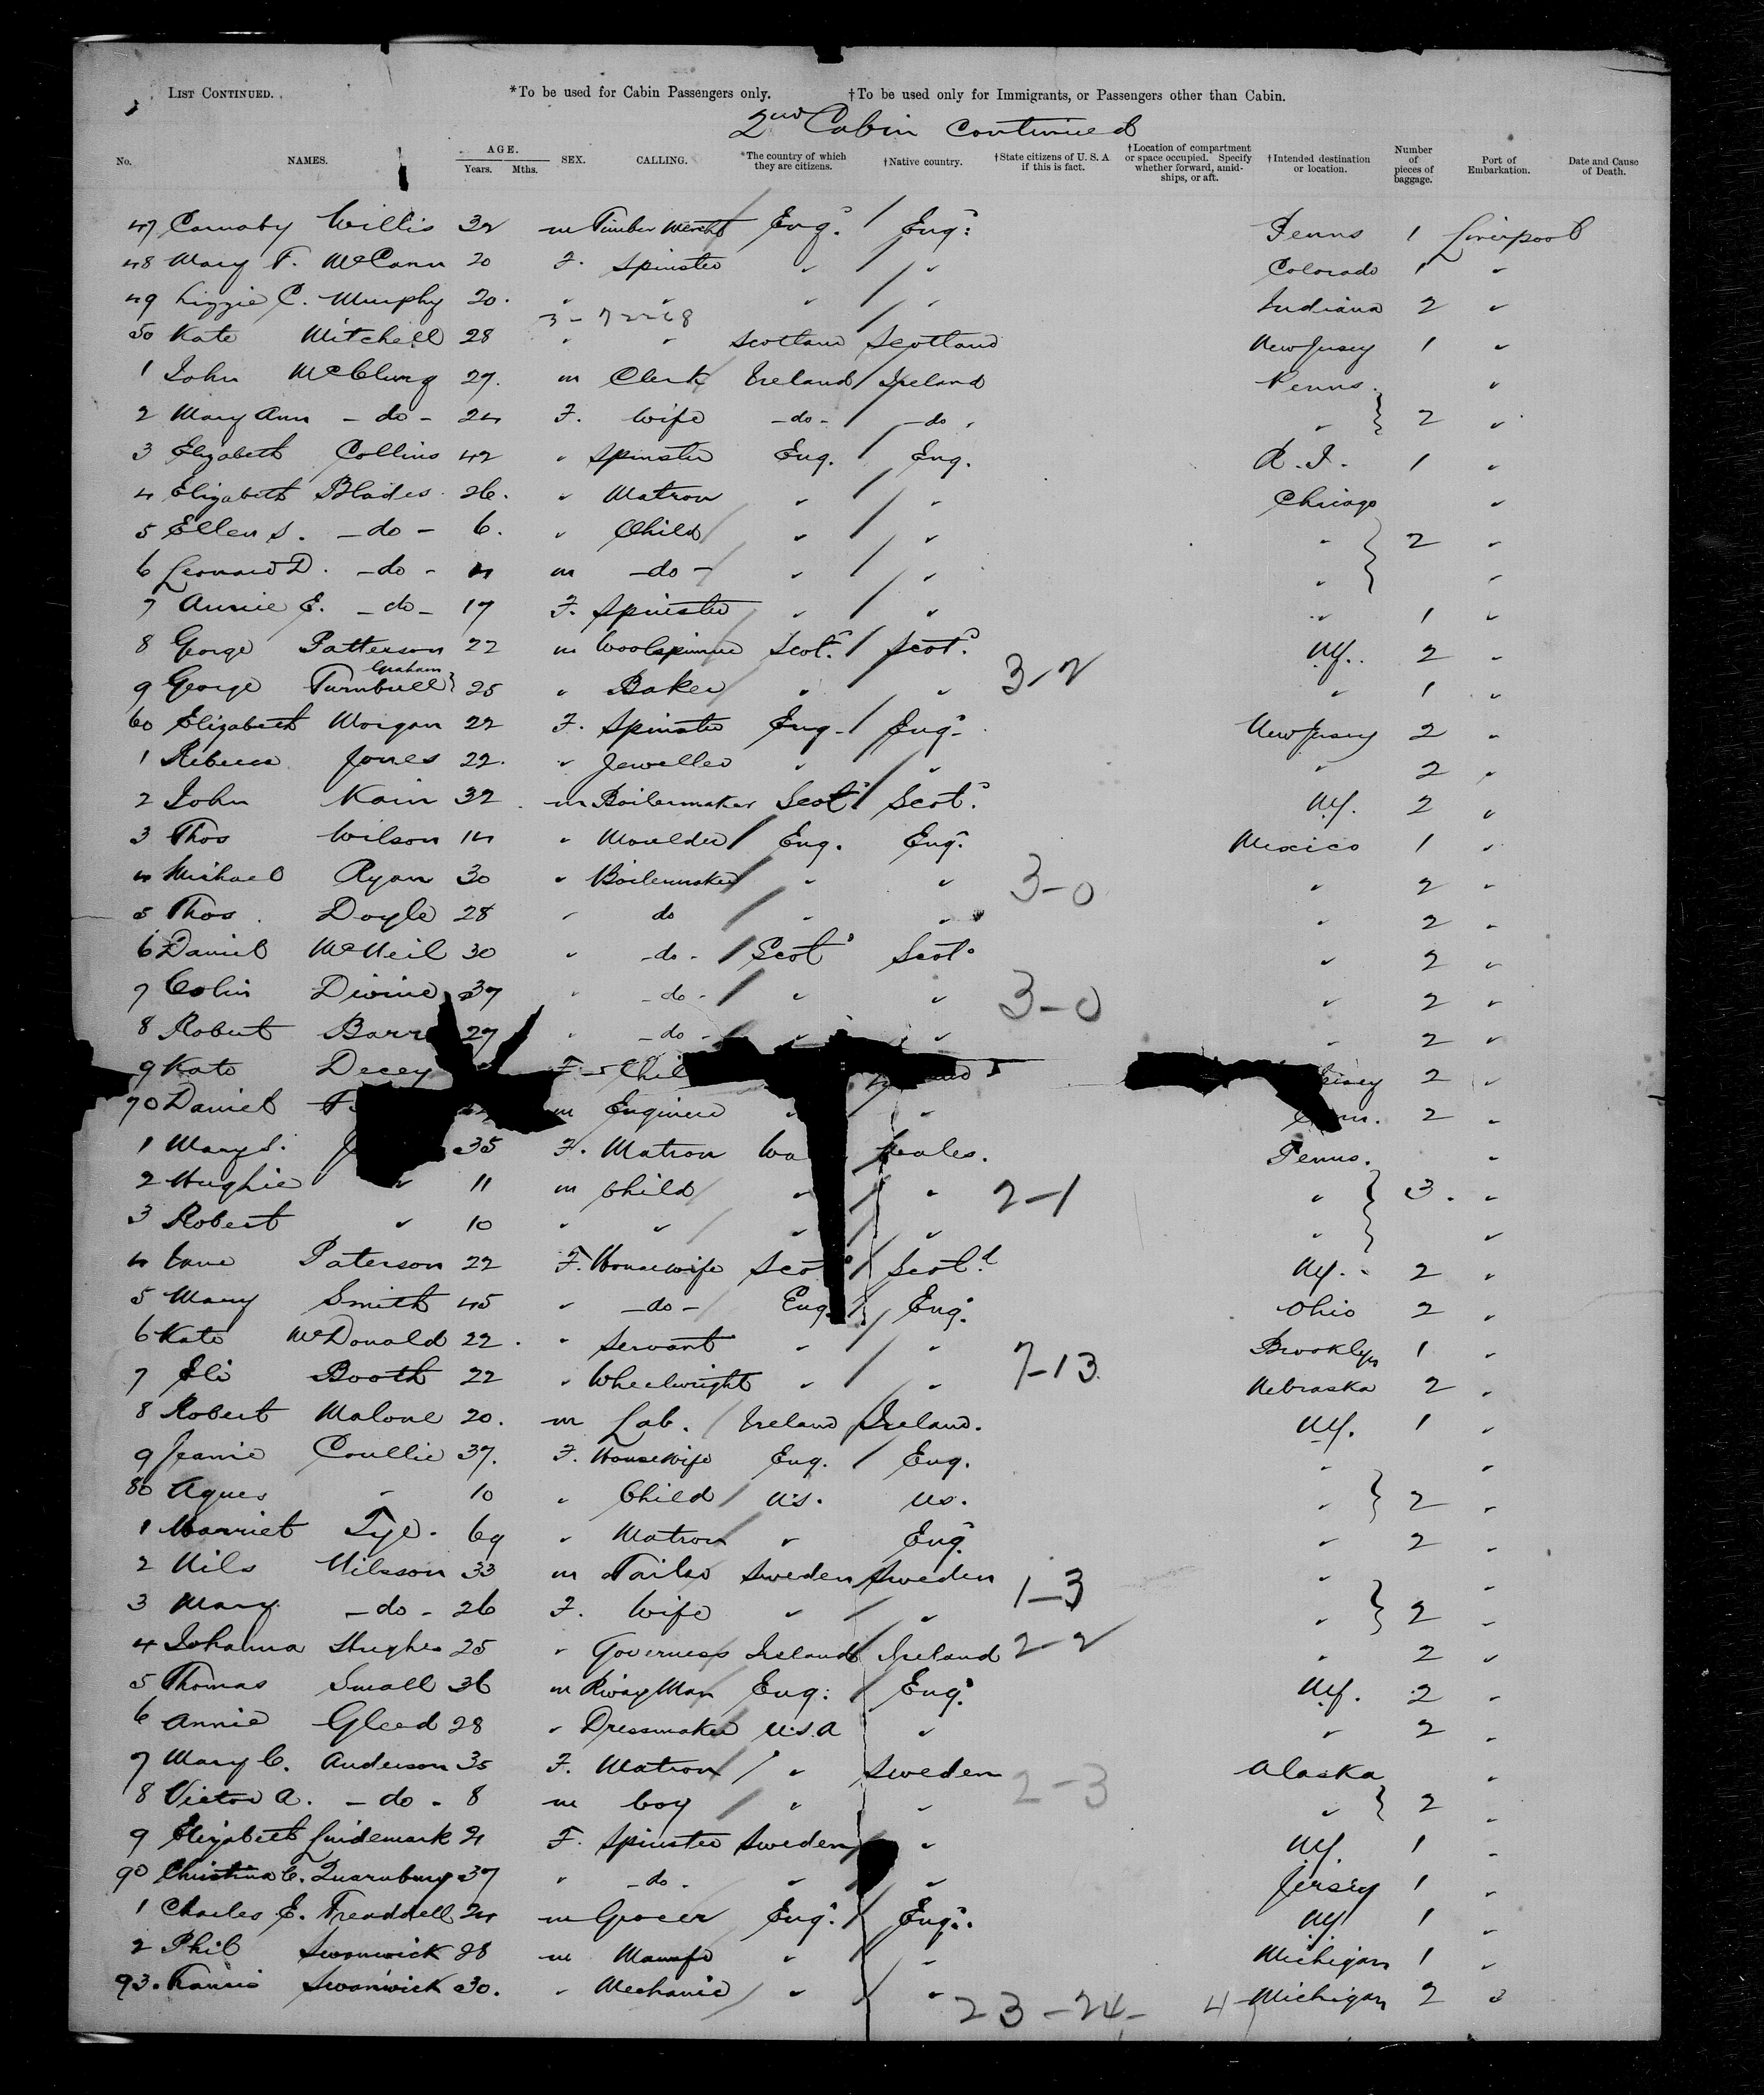 LIST CONTINUED. *To be used for Cabin Passengers only. †To be used only for Immigrants, or Passengers other than Cabin.
2nd Cabin continued
No. NAMES. AGE. Years. Mths. SEX. CALLING. *The country of which they are citizens. †Native country. †State citizens of U. S. A if this is fact. †Location of compartment or space occupied. Specify whether forward, amidships, or aft. †Intended destination or location. Number of pieces of baggage. Port of Embarkation. Date and Cause of Death.
47 Carnaby Willis 32 m Timber Mercht Eng. Eng. Penns 1 Liverpool
48 Mary F. McCann 20 F. Spinster " " Colorado 1 "
49 Lizzie C. Murphy 20. " " " " Indiana 2 "
3-72268
50 Kate Mitchell 28 " " Scotland Scotland New Jersey 1 "
1 John McClung 27. m Clerk Ireland Ireland Penns. "
2 Mary Ann -do- 24 F. Wife -do- -do " 2 "
3 Elizabeth Collins 42 " Spinster Eng. Eng. R.I. 1 "
4 Elizabeth Blades 26. " Matron " " Chicago "
5 Ellen S. -do- 6. " Child " " " 2 "
6 Leonard D. -do- 4 m -do- " " " "
7 Annie E. -do- 17 F. Spinster " " " 1 "
8 George Patterson 22 m Woolspinner Scot. Scot. NY. 2 "
9 George Turnbull Graham 25 " Baker " " 3-2 " 1 "
60 Elizabeth Morgan 22 F. Spinster Eng. Eng. New Jersey 2 "
1 Rebecca Jones 22. " Jeweller " " " 2 "
2 John Kain 32 m Boilermaker Scot. Scot. NY. 2 "
3 Thos Wilson 14 " Moulder Eng. Eng. Mexico 1 "
4 Michael Ryan 30 " Boilermaker " " 3-0 " 2 "
5 Thos. Doyle 28 " do " " " 2 "
6 Daniel McNeil 30 " -do- Scot Scot. " 2 "
7 Colin Divine 37 " -do- " " 3-0 " 2 "
8 Robert Barr 27 " -do- " " " 2 "
9 Kate Decey F. Chil 2 "
70 Daniel m Engineer " " 2 "
1 Mary S. J 35 F. Matron Wa Wales. Penns. "
2 Hughie " 11 m Child " " 2-1 " 3. "
3 Robert " 10 " " " " " "
4 Jane Paterson 22 F. Housewife Scot Scotd NY. 2 "
5 Mary Smith 45 " -do- Eng. Eng. Ohio 2 "
6 Kate McDonald 22. " Servant " " Brooklyn 1 "
7 Eli Booth 22 " Wheelwright " " 7-13. Nebraska 2 "
8 Robert Malone 20. m Lab. Ireland Ireland. NY. 1 "
9 Jeanie Coullie 37. F. Housewife Eng. Eng. " "
80 Agnes " 10 " Child U.S. US. " 2 "
1 Harriet Tye. 69 " Matron " Eng. " 2 "
2 Nils Nilsson 33 m Tailor Sweden Sweden 1-3 " "
3 Mary -do- 26 F. Wife " " " 2 "
4 Johanna Hughes 25 " Governess Ireland Ireland 2-2 " 2 "
5 Thomas Small 36 m Rway Man Eng. Eng. NY. 2 "
6 Annie Gleed 28 " Dressmaker U.S.A " " 2 "
7 Mary C. Anderson 35 F. Matron " Sweden Alaska "
8 Victor A. -do- 8 m boy " " 2-3 " 2 "
9 Elizabeth Lindemark 21 F. Spinster Sweden " NY. 1 "
90 Christina C. 37 " -do- " " Jersey 1 "
1 Charles E. Treaddell 24 m Grocer Eng. Eng. NY 1 "
2 Phil Swanwick 28 m " " Michigan 1 "
93. Francis Swanwick 30. " Mechanic " " Michigan 2 "
23-24- 4